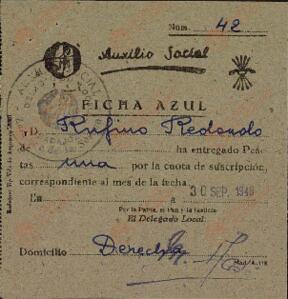 Núm. 42
Auxilio Social
FICHA AZUL
D. Rufino Redondo
de ha entregado Pese-
tas una por la cuota de suscripción,
correspondiente al mes de la fecha.
En a 30 SEP. 1940
Por la Patria, el Pan y la Justicia
El Delegado Local:
Domicilio Derecha
Mod. A. 118